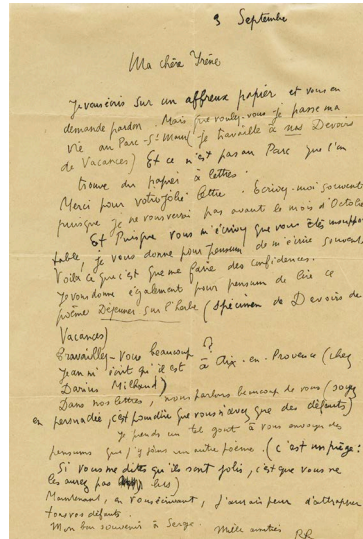 3 Septembre
Ma chère Irène
Je vous écris sur un affreux papier et vous en
demande pardon. Mais que voulez-vous je passe ma
vie au Parc-St-Maur (je travaille à nos Devoirs
de Vacances) Et ce n'est pas au Parc que l'on
trouve du papier à lettres.
Merci pour votre jolie lettre. Ecrivez-moi souvent
puisque je ne vous verrai pas avant le mois d'Octobre
Et Puisque vous m'écrivez que vous êtes insuppor
table, je vous donne pour pensum de m'écrire souvent.
Voilà ce que c'est que me faire des confidences.
Je vous donne également pour pensum de lire ce
poème Déjeuner sur l'herbe (spécimen de Devoirs de
Vacances)
Travaillez-vous beaucoup ?
Jean m'écrit qu'il est à Aix-en-Provence (chez
Darius Milhaud)
Dans nos lettres, nous parlons beaucoup de vous (soyez
en persuadée, c'est pour dire que vous n'avez que des défauts)
Je prends un tel goût à vous envoyer des
pensums que j'y joins un autre poème. (c'est un piège:
Si vous me dites qu'ils sont jolis, c'est que vous ne
les aurez pas lus)
Maintenant, en vous écrivant, j'aurais peur d'attraper
tous vos défauts.
Mon bon souvenir à Serge. Mille amitiés
RR